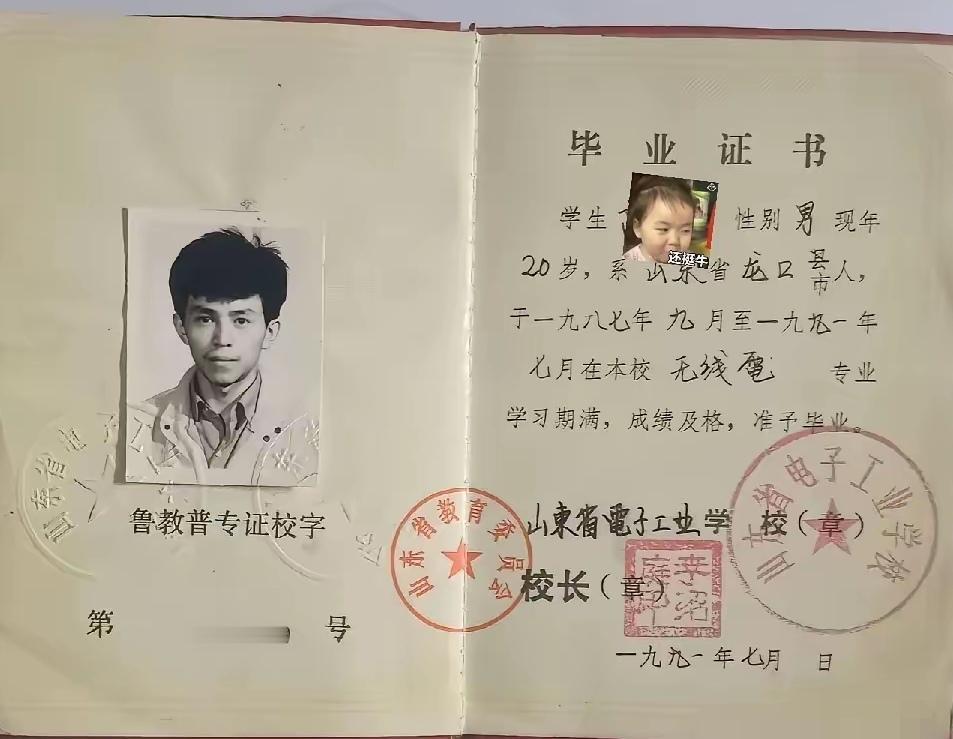 山东省电子工业学校
鲁教普专证校字
第 号
山东省教育委员会
毕业证书
学生 性别 男 现年
还挺牛
20岁，系 山东省 龙口 县
市 人，
于一九八七年 九 月至一九九一年
七月在本校 无线電 专业
学习期满，成绩及格，准予毕业。
山東省電子工业学 校（章）
山东省电子工业学校
校长（章）
一九九一年七月 日